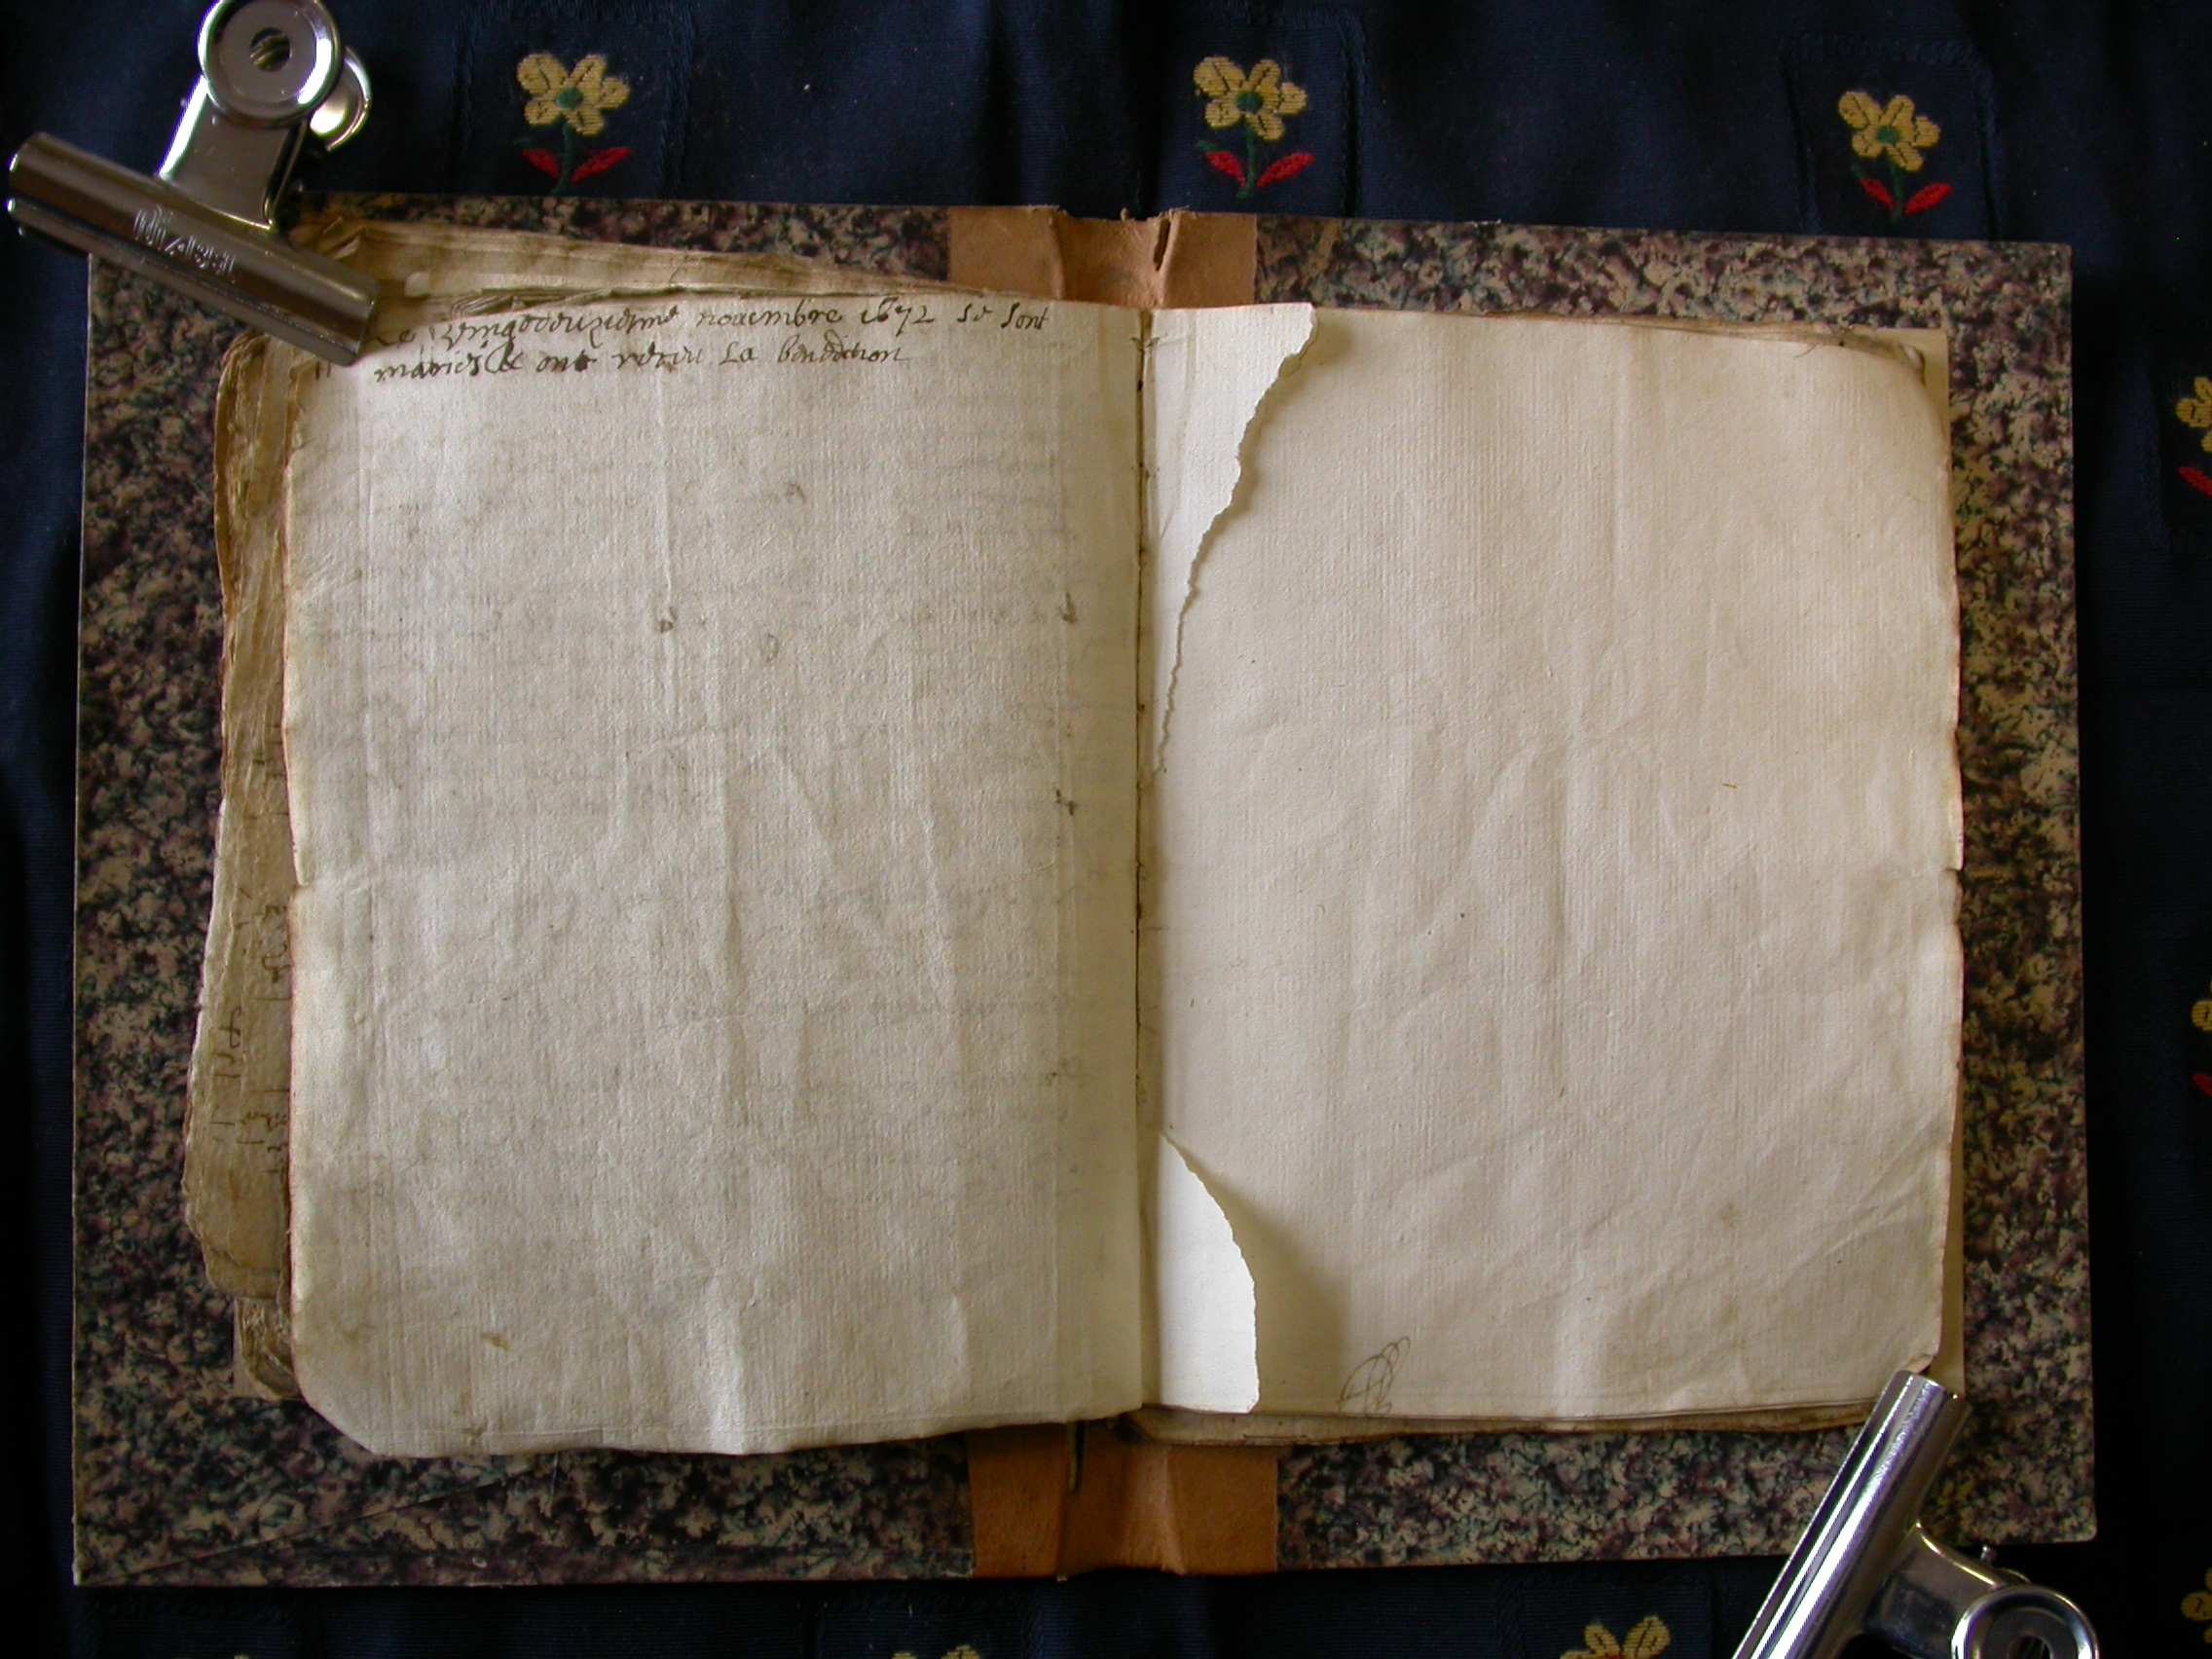 Le vingtdeuziesme nouembre 1672 se sont
mariés & ont receu La benediction